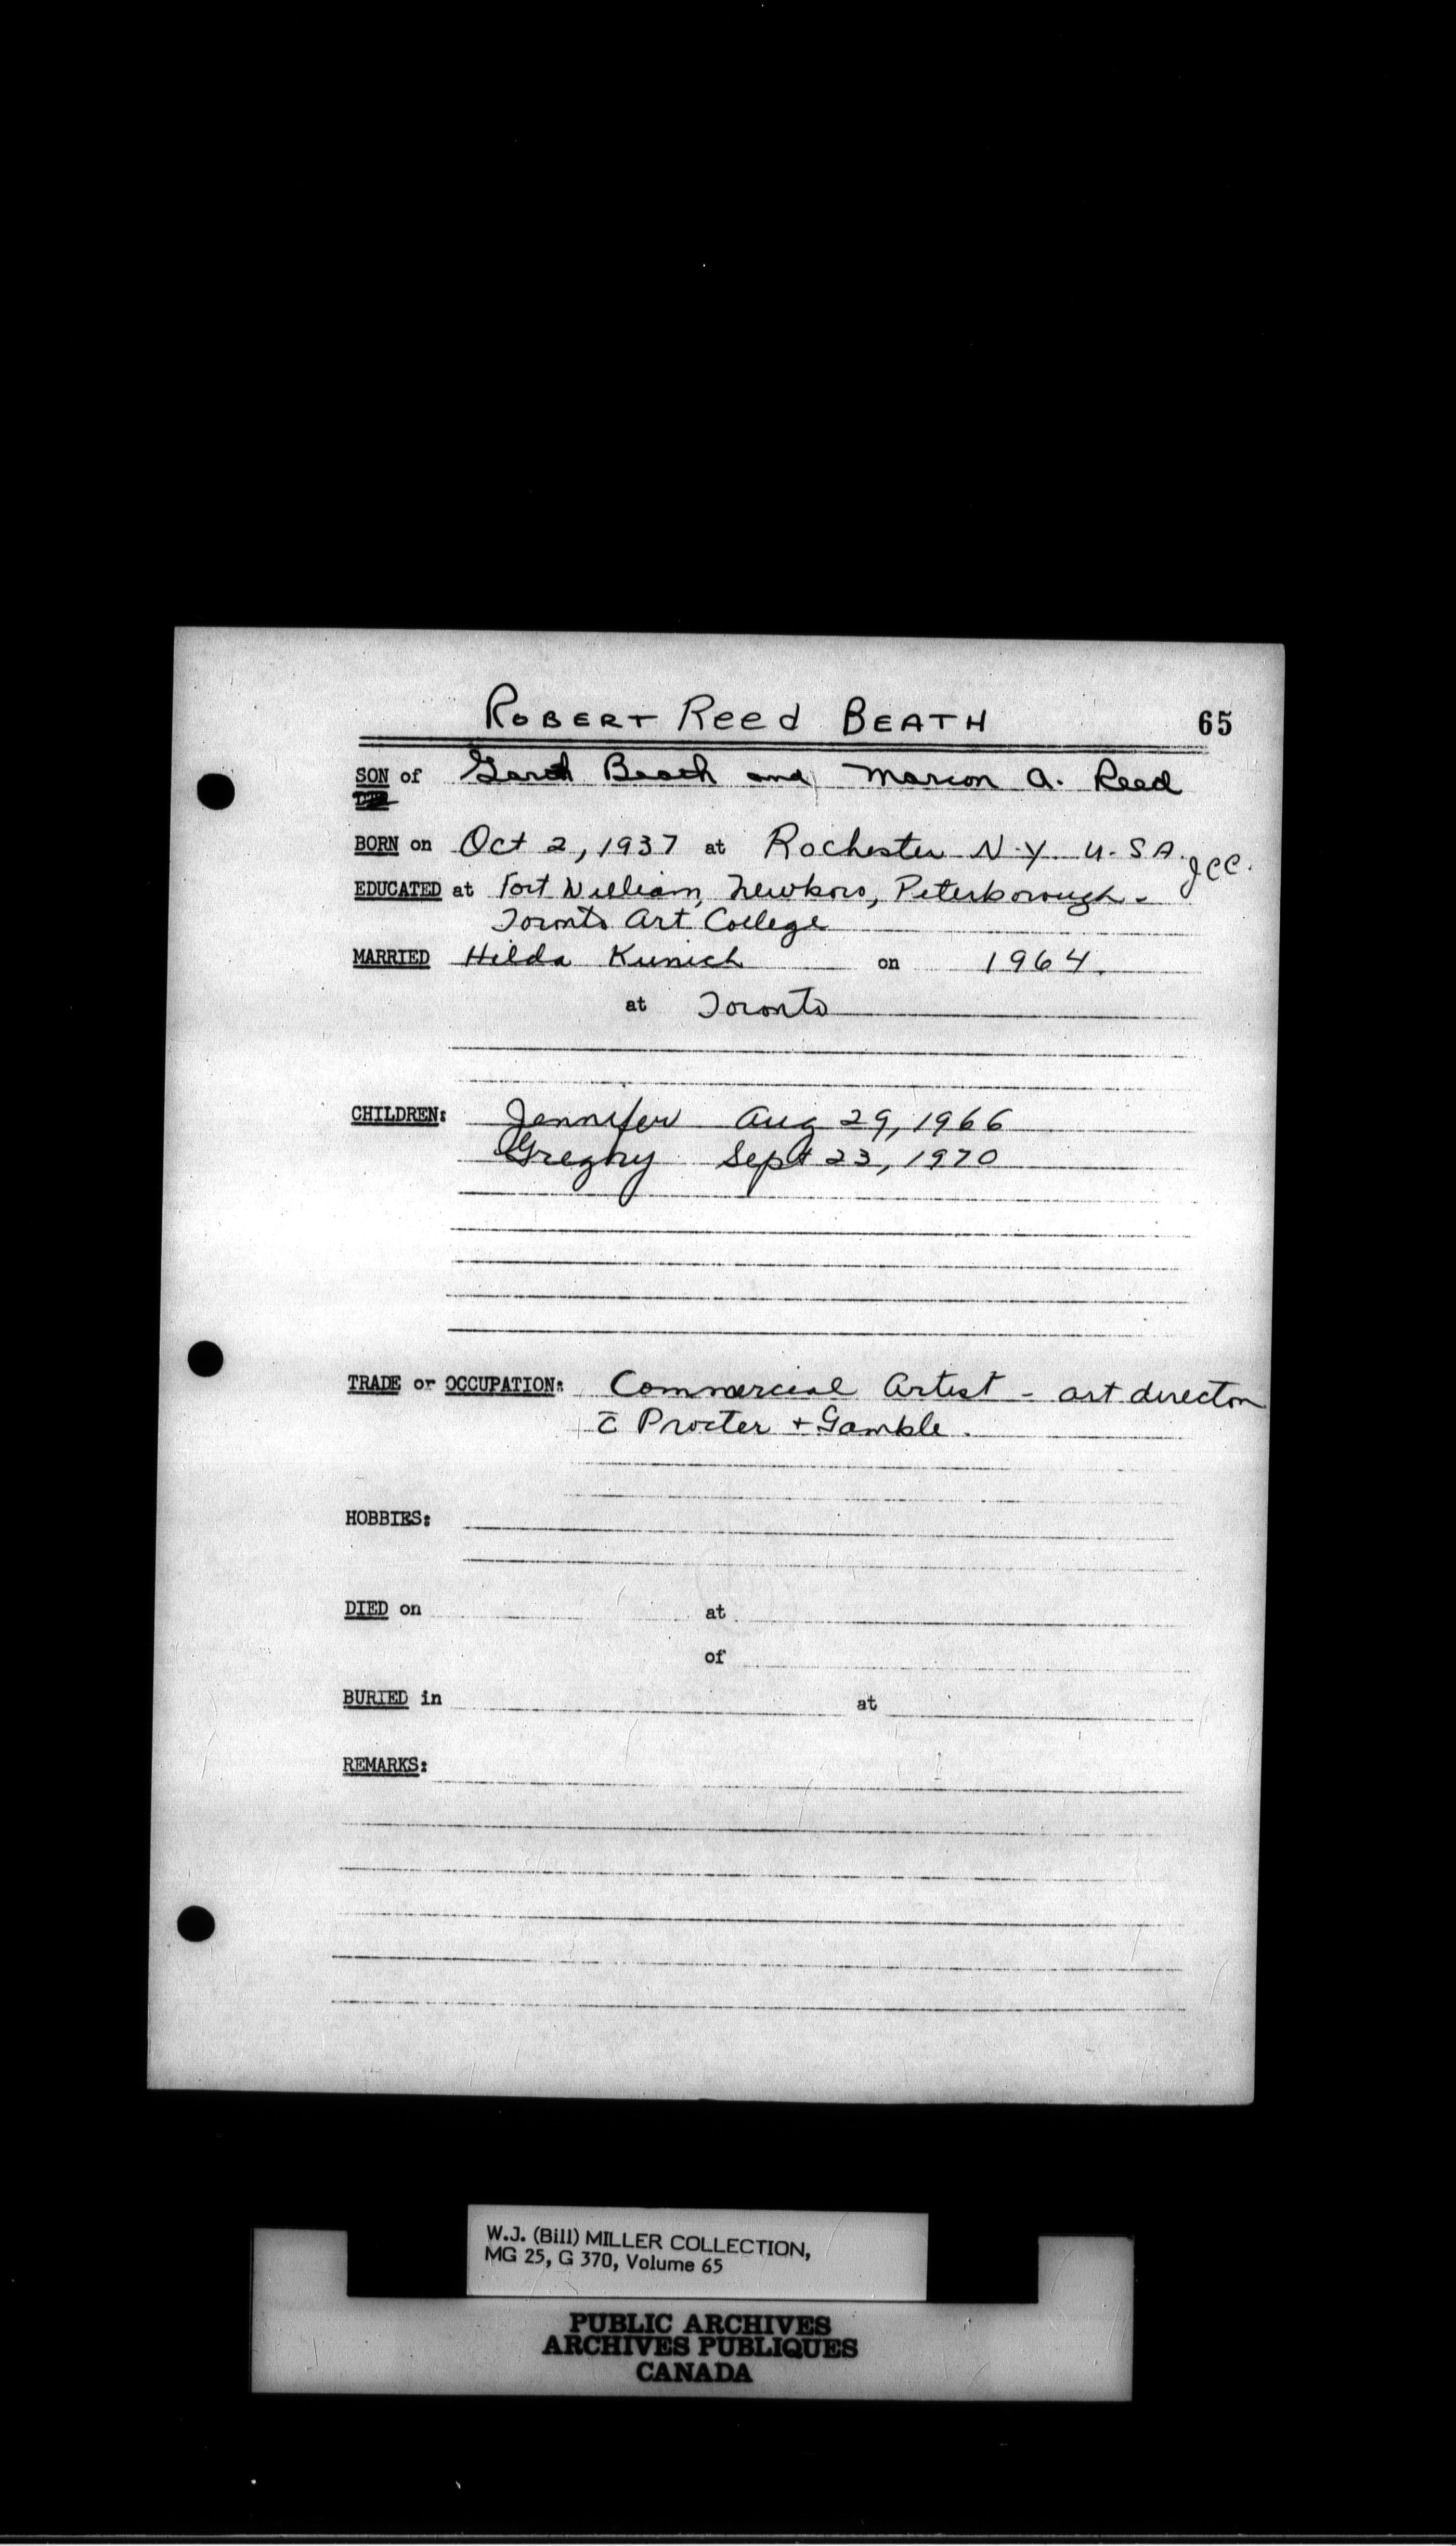 ROBERT Reed BEATH 65
SON of Garth Beath and Marion A. Reed
BORN on Oct 2, 1937 at Rochester N.Y. U.S.A.
EDUCATED at Fort William, Newboro, Peterborough - JCC.
Toronto Art College
MARRIED Hilda Kunich on 1964.
at Toronto
CHILDREN: Jennifer Aug 29, 1966
Gregory Sept 23, 1970
TRADE or OCCUPATION: Commercial Artist - art director
c̄ Procter + Gamble.
HOBBIES:
DIED on at
of
BURIED in at
REMARKS:
W.J. (Bill) MILLER COLLECTION,
MG 25, G 370, Volume 65
PUBLIC ARCHIVES
ARCHIVES PUBLIQUES
CANADA